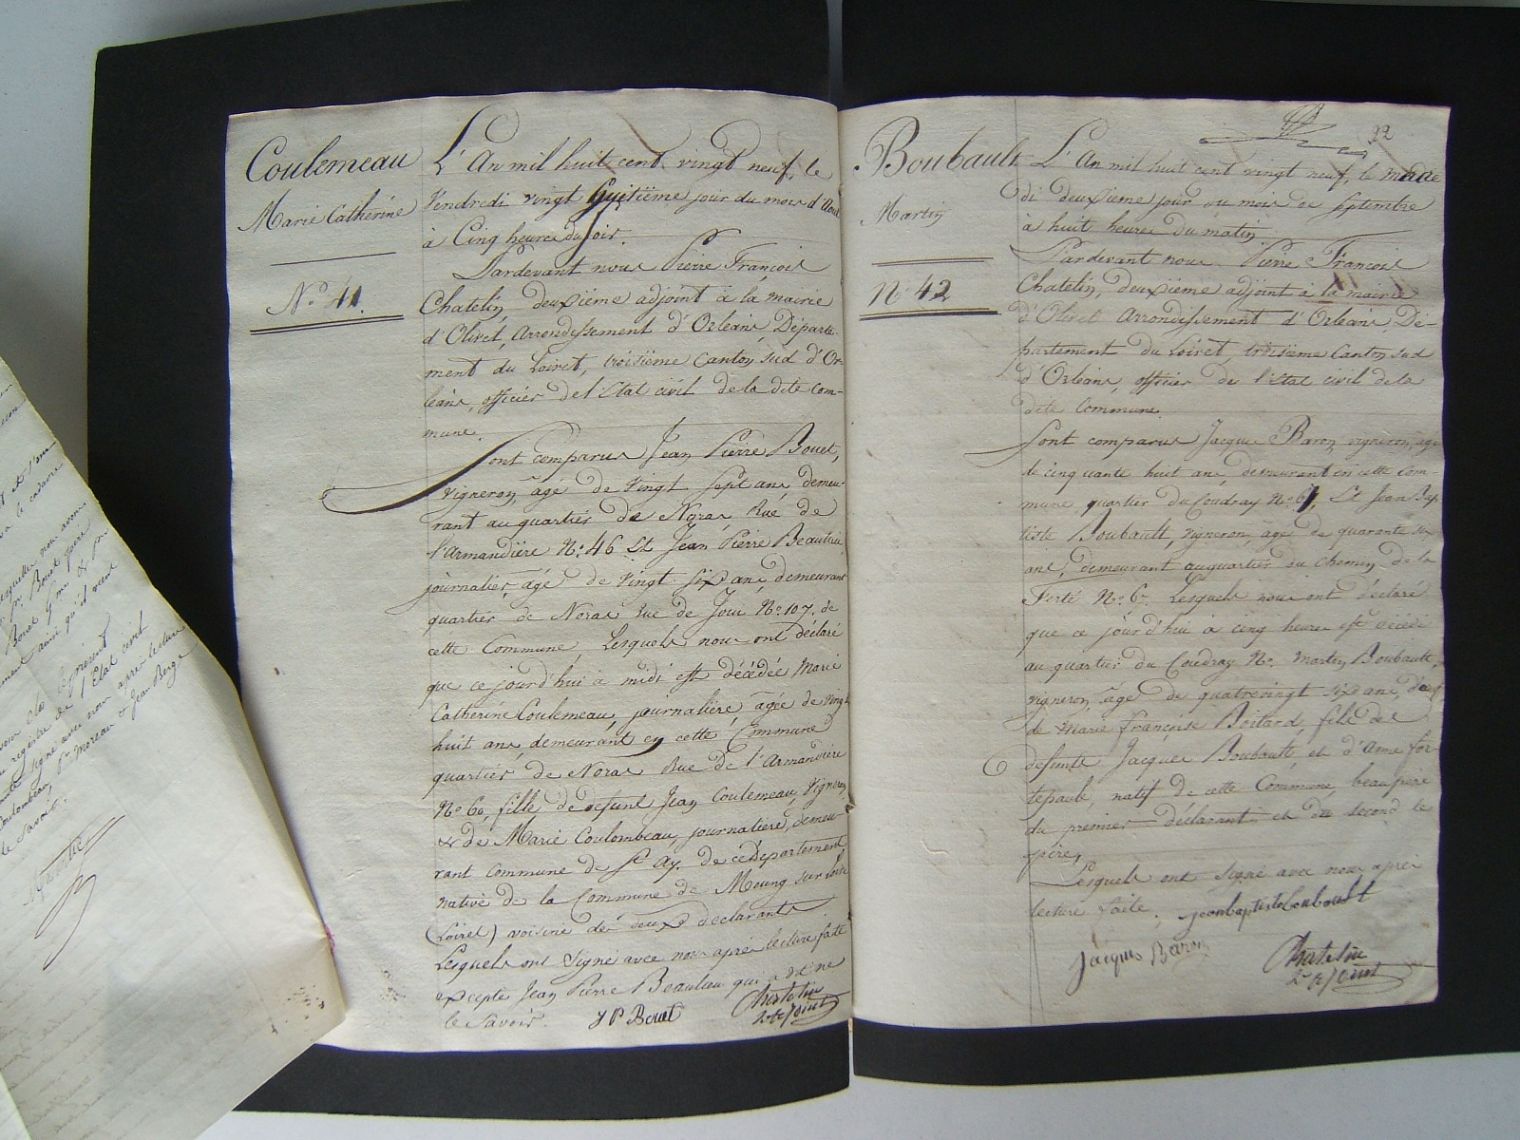 Coulemeau
Marie Catherine
N.° 41.
L'An mil huit cent vingt neuf, le
Vendredi vingt huitième jour du mois d'Aout
à Cinq heures du soir.
Pardevant nous Pierre François
Chatelin, deuxième adjoint à la mairie
d'Olivet, Arrondissement d'Orléans, Départe-
ment du Loiret, troisième Canton sud d'Or-
léans, officier de l'Etat civil de la dite Com-
mune.
Sont comparus Jean Pierre Bouet,
vigneron, âgé de Vingt sept ans, demeu-
rant au quartier de Noras, Rue de
l'Armandière N.° 46 Et Jean Pierre Beaulieu,
journalier, âgé de vingt six ans, demeurant
quartier de Noras Rue de Joui N.° 107, de
cette Commune, Lesquels nous ont déclaré
que ce jourd'hui à midi est décédée Marie
Catherine Coulemeau, journalière, âgée de vingt
huit ans, demeurant en cette Commune
quartier de Noras Rue de l'Armandière
N.° 60, fille de defunt Jean Coulemeau, Vigneron,
& de Marie Coulombeau, journalière, demeu-
rant commune de St Ay, de ce département
native de la Commune de Meung sur Loire
(Loiret) voisine des deux déclarants
Lesquels ont Signé avec nous après lecture faite
excepté Jean Pierre Beaulieu qui a dit ne
le Savoir. J P Bouet
Chatelin
2e adjoint
92
Boubault
Martin
N.° 42
L'An mil huit cent vingt neuf, le mercre
di deuxieme jour du mois de septembre
à huit heures du matin
Pardevant nous Pierre François
Chatelin, deuxieme adjoint à la mairie
d'Olivet Arrondissement d'Orléans, Dé-
partement du Loiret, troisieme Canton sud
d'Orléans, officier de l'Etat civil de la
dite Commune.
Sont comparus Jacques Baron, vigneron, âgé
de cinquante huit ans, demeurant en cette Com-
mune, quartier du Coudray N.° 61, Et Jean Bap
tiste Boubault, vigneron, âgé de quarante six
ans, demeurant au quartier du Chemin de la
Ferté N.° 6. Lesquels nous ont déclaré
que ce jourd'hui à cinq heures est décédé
au quartier du Coudray N.° Martin Boubault,
vigneron, âgé de quatrevingt six ans, veuf
de Marie Françoise Boitard, fils de
defunts Jacques Boubault, et d'Anne For
tepaule, natif de cette Commune, beau pere
du premier déclarant et du second le
père,
Lesquels ont signé avec nous après
lecture faite. jean baptiste boubault
Jacques Baron
Chatelin
2e adjoint